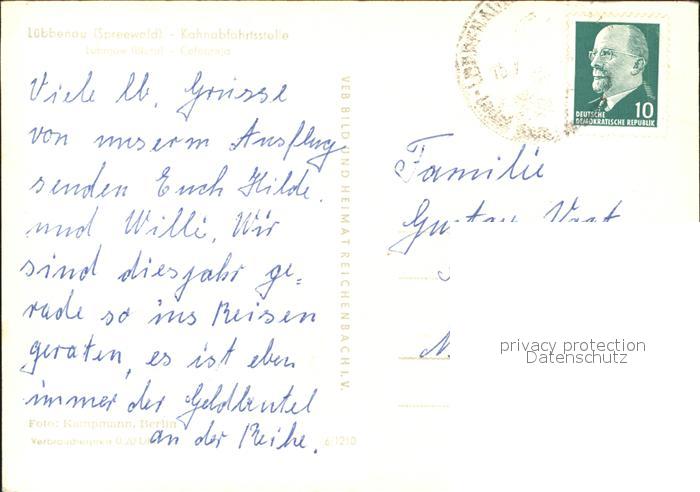 Lübbenau (Spreewald) - Kahnabfahrtsstelle
Lubnjow (Błota) -
Viele lb. Grüsse
von unserm Ausflug
senden Euch Hilde
und Willi. Wir
sind diesjahr ge=
rade so ins Reisen
geraten, es ist eben
immer der Geldbeutel
an der Reihe.
Foto: Kampmann, Berlin
Verbraucherpreis 0,20
6/1210
VEB BILD UND HEIMAT REICHENBACH I. V.
10
DEUTSCHE
DEMOKRATISCHE REPUBLIK
Familie
Gustav
privacy protection
Datenschutz